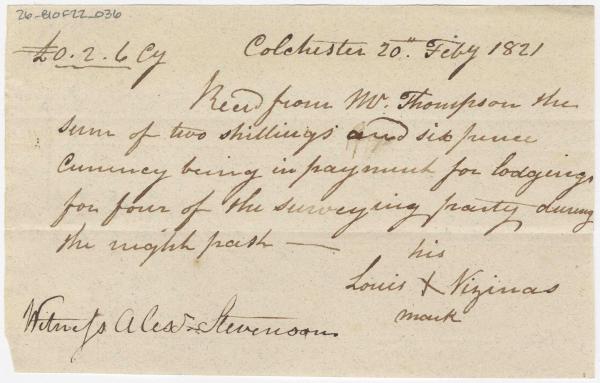 26-B10F22_036
£0.2.6 Cy Colchester 20th Feby 1821
Recd from Mr. Thompson the
sum of two shillings and six pence
Currency being in payment for lodgings
for four of the surveying party during
the night past —
his
Louis X Vizinas
mark
Witness Alexr Stevenson